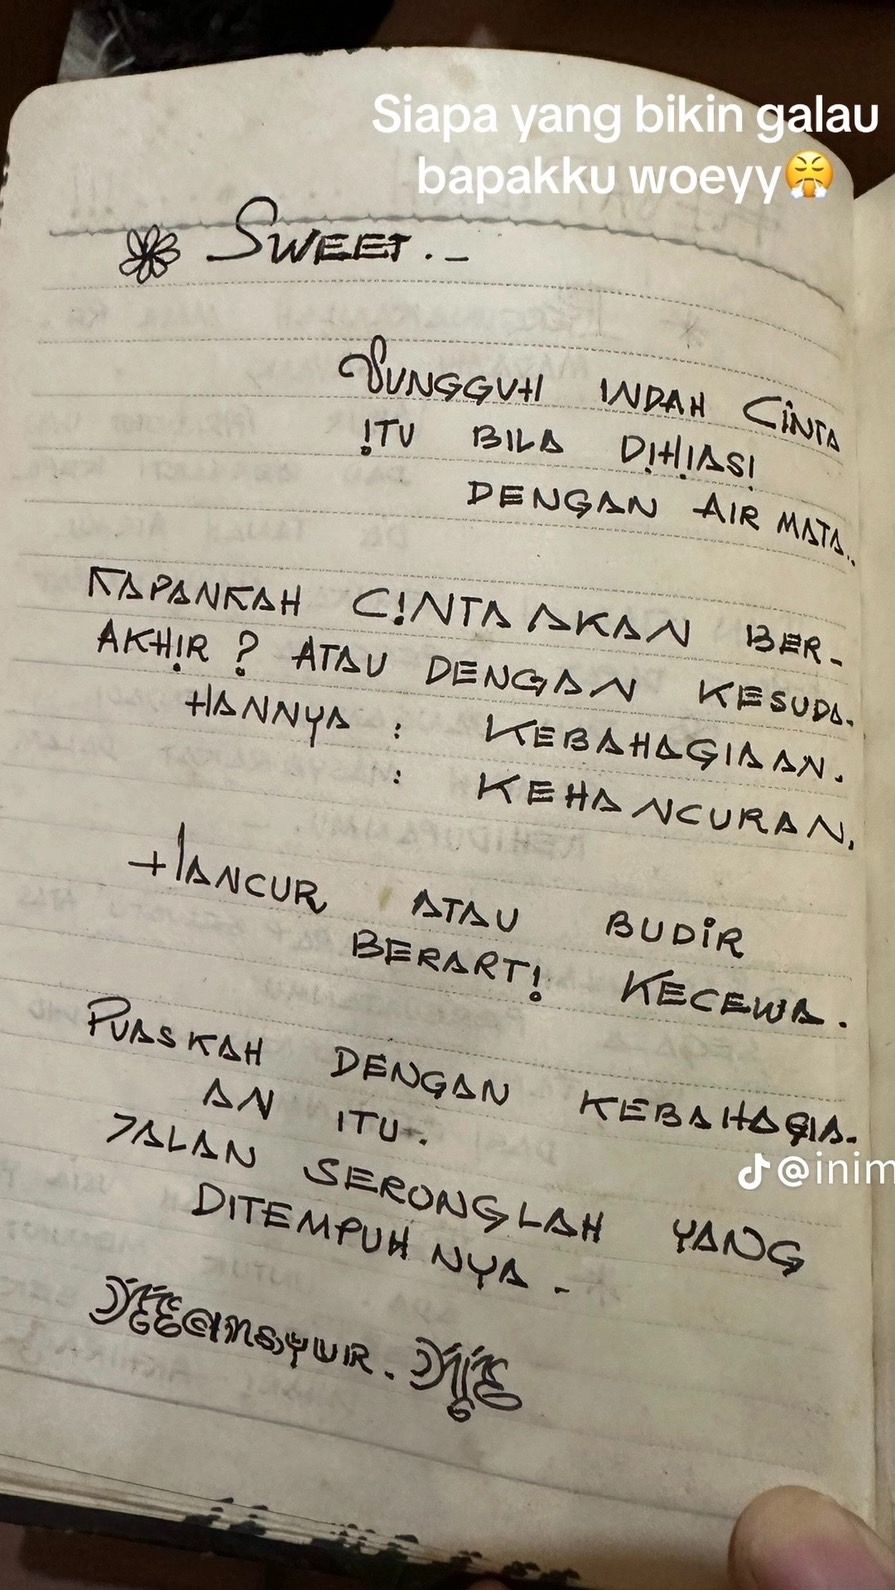 Siapa yang bikin galau
bapakku woeyy😤
SWEET . _
SUNGGUH INDAH CINTA
ITU BILA DIHIASI
DENGAN AIR MATA..
KAPANKAH CINTA AKAN BER-
AKHIR ? ATAU DENGAN KESUDA-
HANNYA : KEBAHAGIAAN.
: KEHANCURAN.
HANCUR ATAU BUDIR
BERARTI KECEWA.
PUASKAH DENGAN KEBAHAGIA-
AN ITU.
JALAN SERONGLAH YANG
DITEMPUH NYA.
@inim